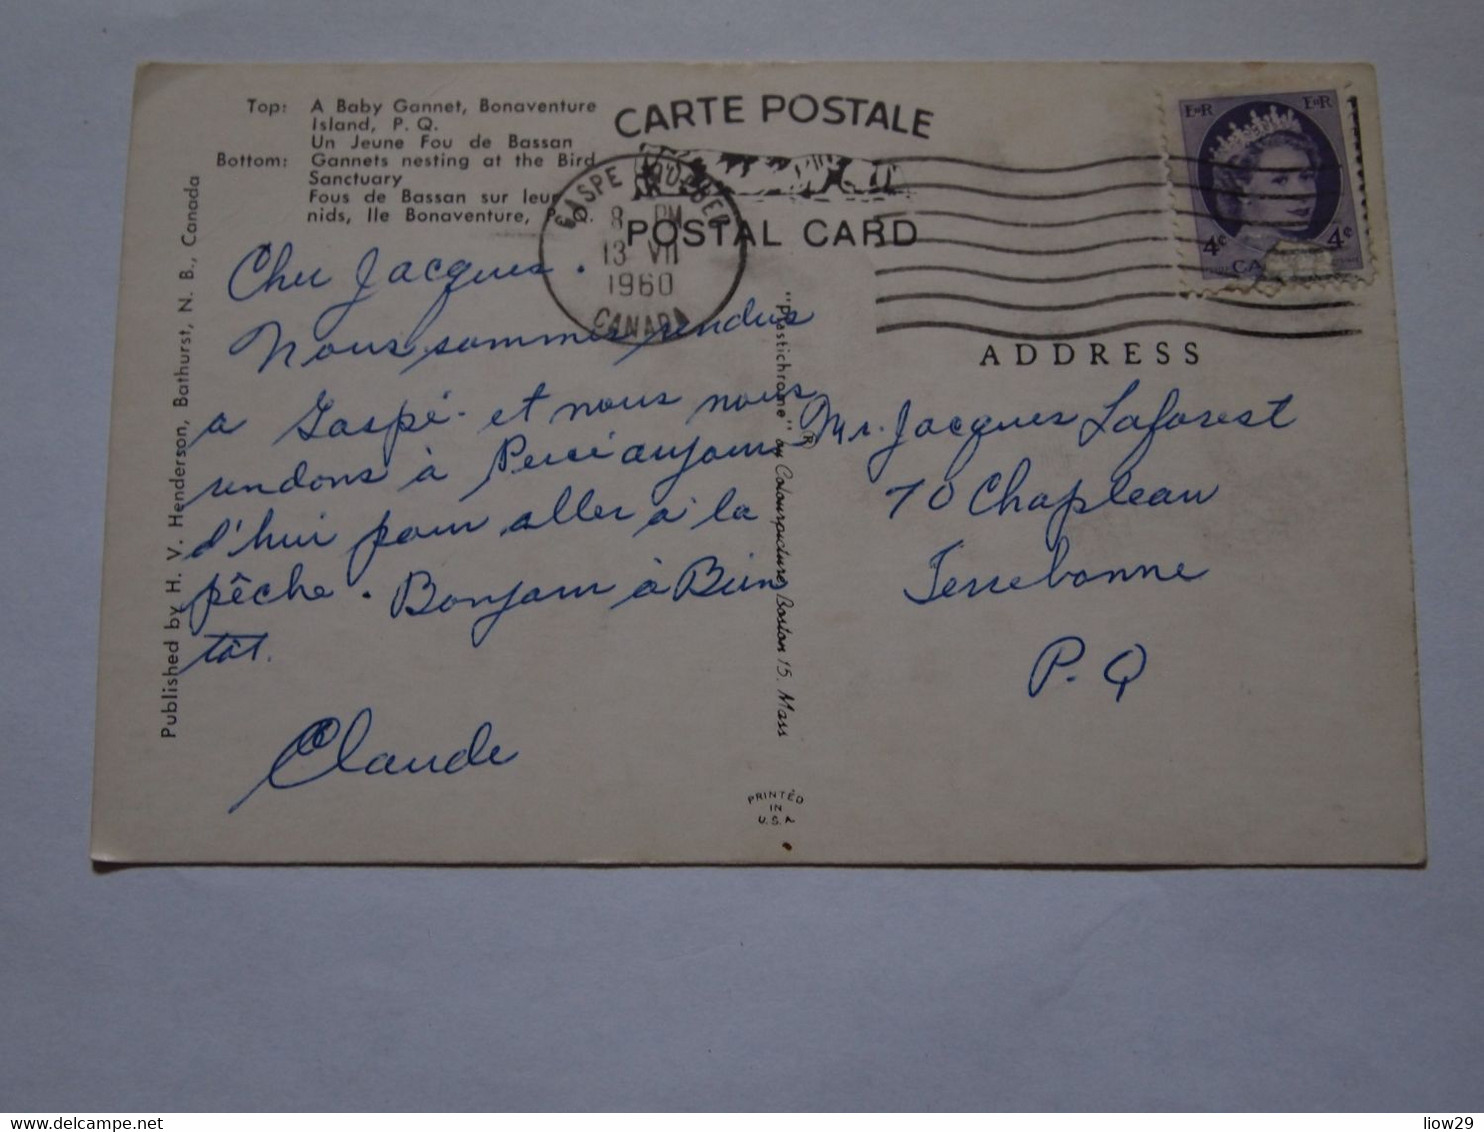 Top: A Baby Gannet, Bonaventure
Island, P. Q.
Un Jeune Fou de Bassan
Bottom: Gannets nesting at the Bird
Sanctuary
Fous de Bassan sur leurs
nids, Ile Bonaventure, P. Q.
CARTE POSTALE
POSTAL CARD
GASPE
8 PM
13 VII
1960
CANADA
E II R E II R
4¢ 4¢
CA
ADDRESS
Published by H. V. Henderson, Bathurst, N. B., Canada
Cher Jacques.
Nous sommes rendus
a Gaspé - et nous nous
rendons à Percé aujour
d'hui pour aller à la
pêche. Bonjour à Bien
tôt.
Claude
"Plastichrome" ® by Colourpicture, Boston 15, Mass
PRINTED
IN
U.S.A.
Mr. Jacques Laforest
70 Chapleau
Terrebonne
P. Q
liow29